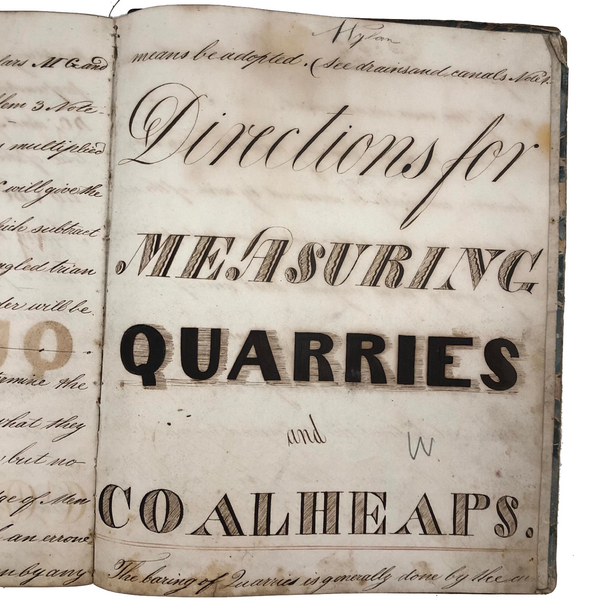 lars M G and
lem 3 Note
multiplied
will give the
hich subtract
ngled trian
der will be
ermine the
what they
but no
ge of Men
an errone
n by any
means be adopted. (See drains and canals Note
Directions for
MEASURING
QUARRIES
and
W.
COALHEAPS.
The baring of Quarries is generally done by the cu